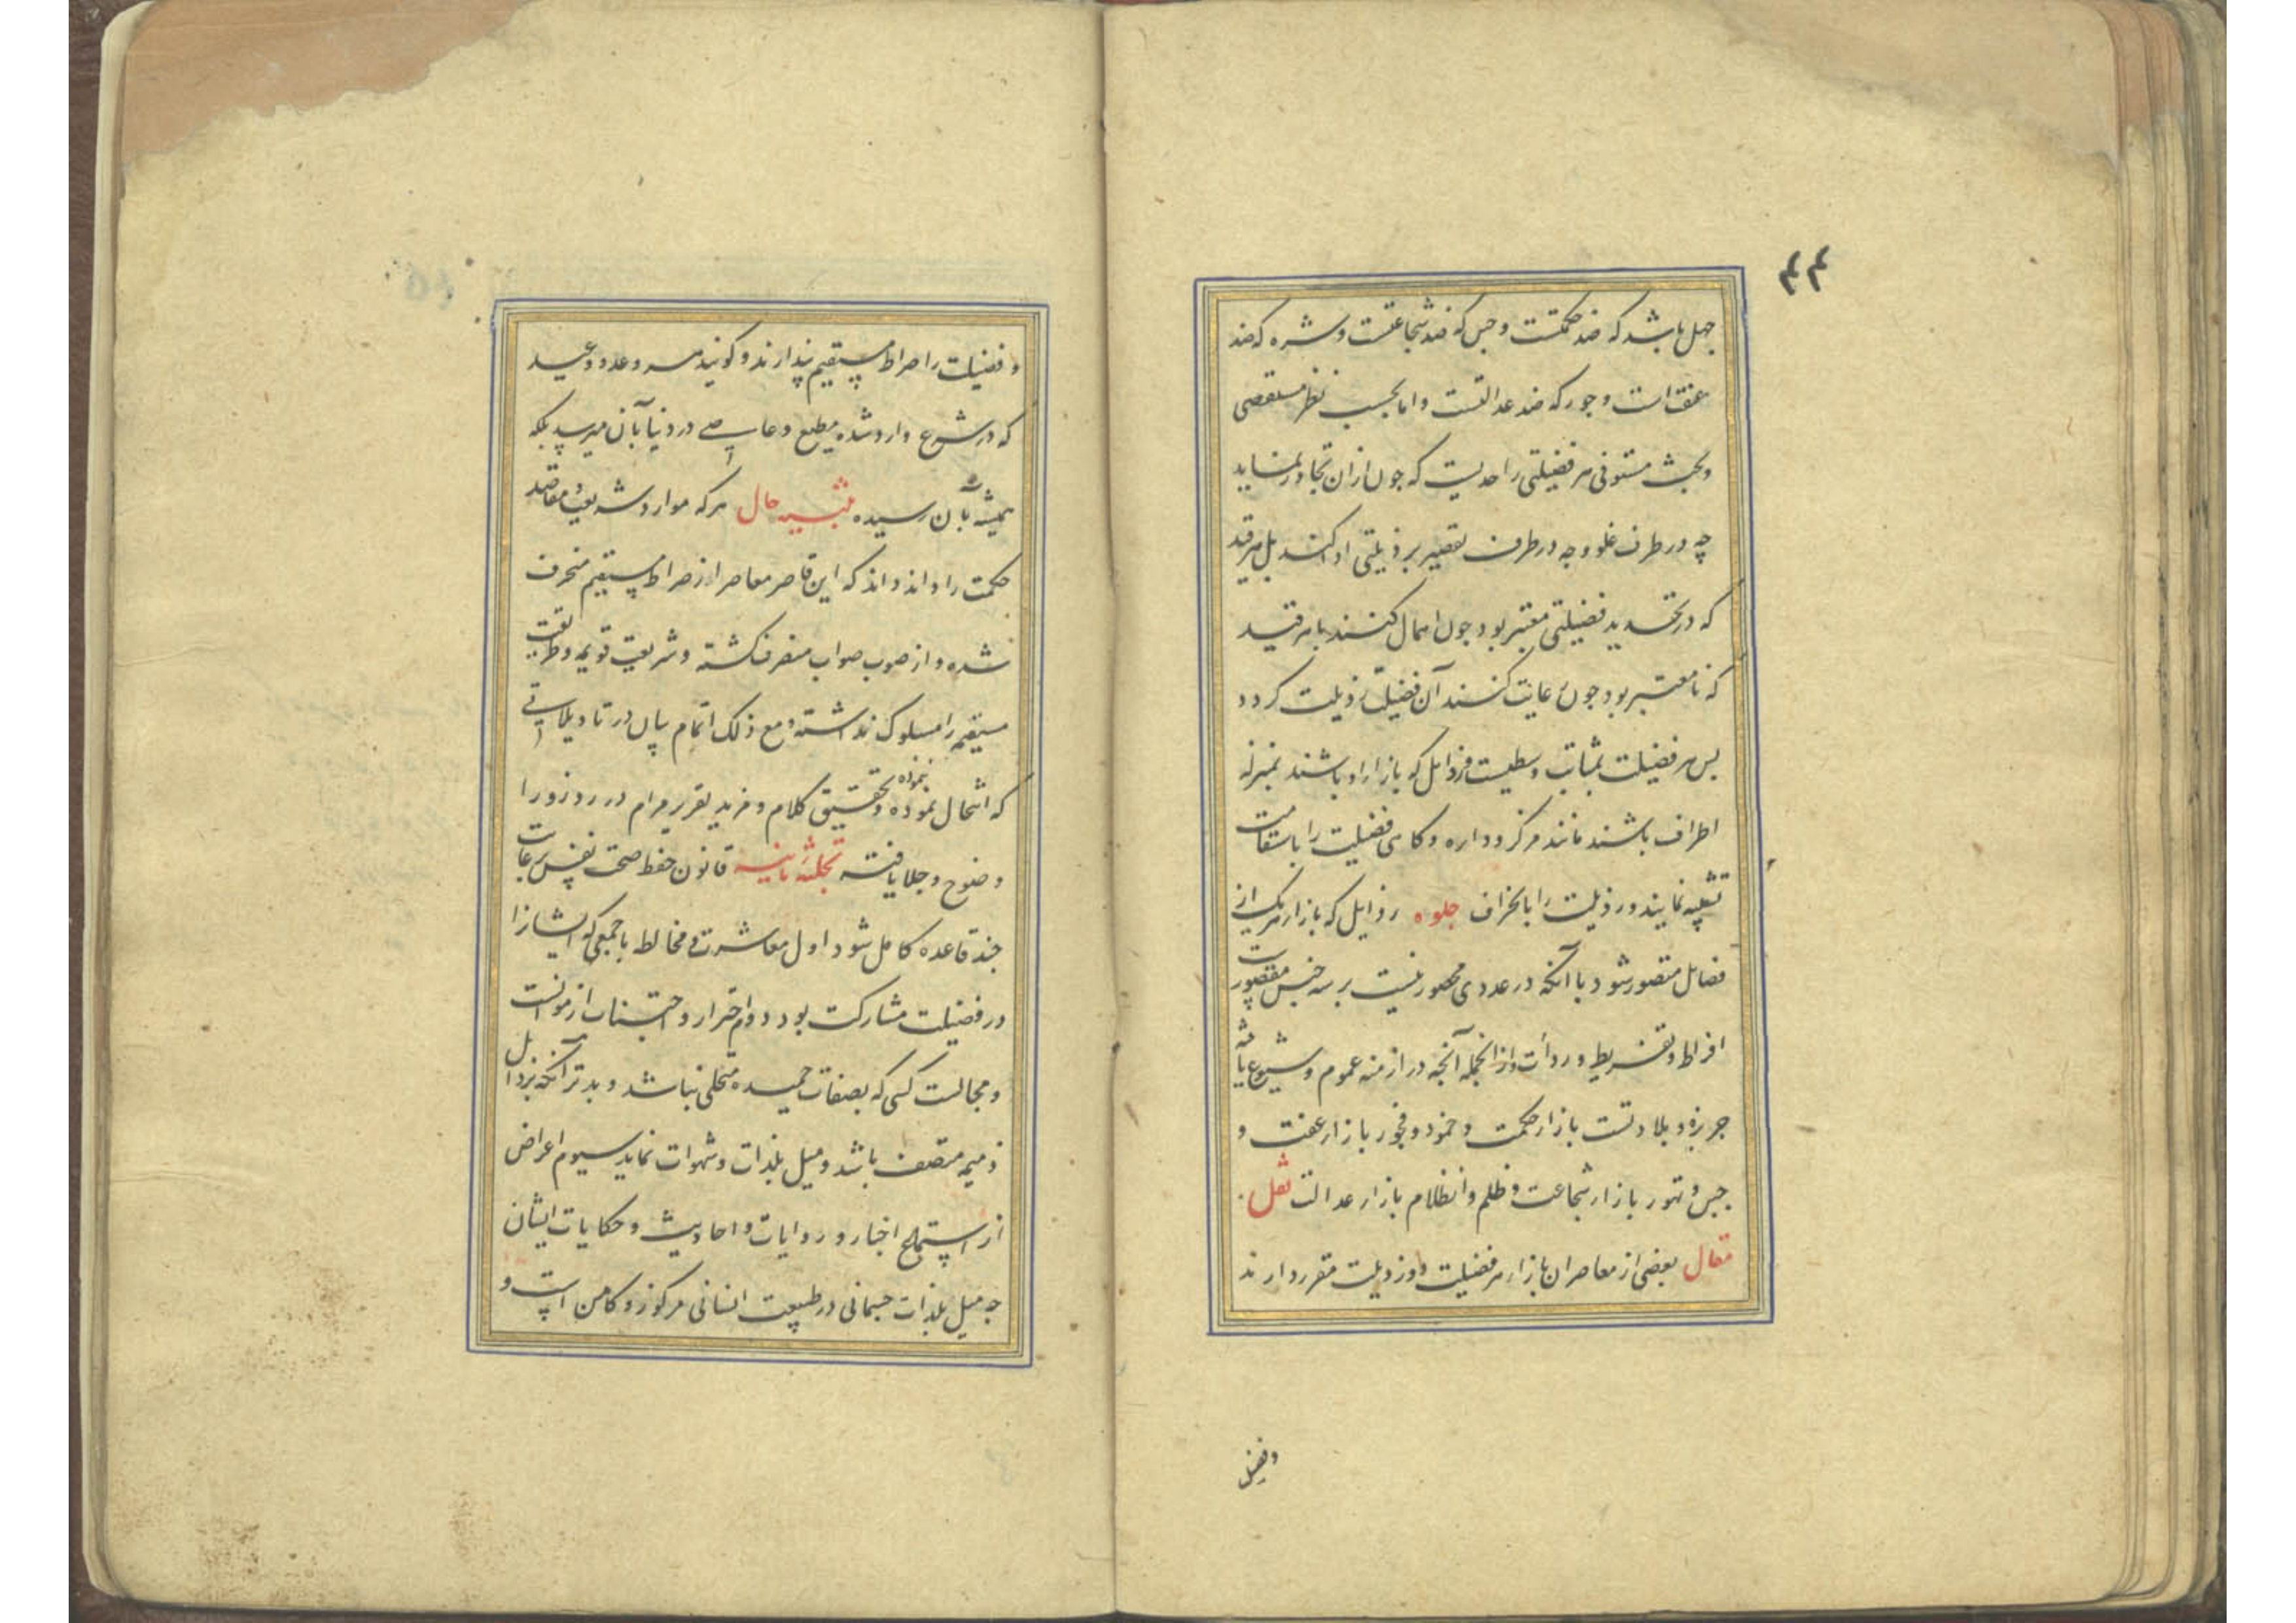 ۴۴
جهل باشد که ضد حکمتست و جبن که ضد شجاعتست و شره که ضد
عفت است و جور که ضد عدالتست و اما بحسب نظر مستقصی
و بحث مستوفی هر فضیلتی را حدیست که چون ازان تجاوز نماید
چه در طرف غلو و چه در طرف تقصیر برذیلتی ادا کند بل هر قید
که در تحدید فضیلتی معتبر بود چون اهمال کنند یا هر قید
که نامعتبر بود چون رعایت کنند آن فضیلت رذیلت گردد
پس هر فضیلت بمثابت وسطیست و رذایل که بازار او باشند بمنزله
اطراف باشند مانند مرکز و دایره و گاهی فضیلت را باستقامت
تشبیه نمایند و رذیلت را بانحراف جلوه رذایل که بازار هریک از
فضایل متصور شود با آنکه در عددی محصور نیست بر سه جنس مقصورست
افراط و تفریط و ردأت و ازانجمله آنچه در ازمنه عموم و شیوع یافته
جربزه و بلادتست بازار حکمت و خمود و فجور بازار عفت و
جبن و تهور بازار شجاعت و ظلم و انظلام بازار عدالت نقل
مقال بعضی از معاصران بازار هر فضیلت دو رذیلت مقرر دارند
و فضیل
و فضیلت را صراط مستقیم پندارند و گویند هر وعد و وعید
که در شرع وارد شده مطیع و عاصی در دنیا بآن میرسد بلکه
همیشه بآن رسیده تنبیه حال هرکه موارد شریعت و مقاصد
حکمت را داند داند که این قاصر معاصر از صراط مستقیم منحرف
شده و از صوب صواب منصرف گشته و شریعت قویمه و طریقت
مستقیمه را مسلوک نداشته و مع ذلک اتمام بیان در تاویلاتی
که انتحال نموده و تحقیق کلام و مزید تقریر مرام در روزورا
وضوح و جلا یافته تجلیه ثانیه قانون حفظ صحت نفس برعایت
چند قاعده کامل شود اول معاشرت و مخالط با جمعی که ایشانرا
در فضیلت مشارکت بود دوم احتراز و اجتناب از موانست
و مجالست کسی که بصفات حمیده متحلی نباشد و بدتر آنکه برذایل
ذمیمه متصف باشد و میل بلذات و شهوات نماید سیوم اعراض
از استماع اخبار و روایات و احادیث و حکایات ایشان
چه میل بلذات جسمانی در طبیعت انسانی مرکوز و کامن است و